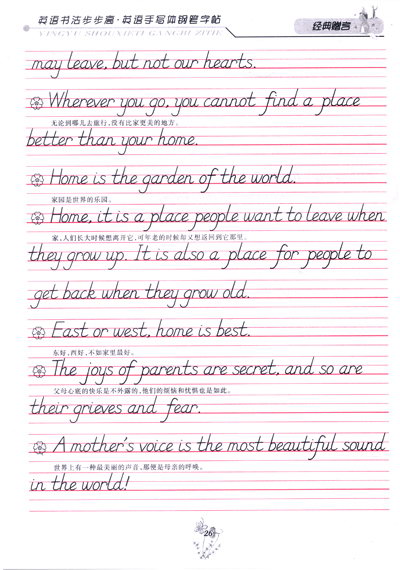 英语书法步步高·英语手写体钢笔字帖
YINGYU SHOUXIETI GANGBI ZITIE
经典赠言
may leave, but not our hearts.
Wherever you go, you cannot find a place
无论到哪儿去旅行,没有比家更美的地方。
better than your home.
Home is the garden of the world.
家园是世界的乐园。
Home, it is a place people want to leave when
家,人们长大时候想离开它,可年老的时候却又想返回到它那里。
they grow up. It is also a place for people to
get back when they grow old.
East or west, home is best.
东好,西好,不如家里最好。
The joys of parents are secret, and so are
父母心底的快乐是不外露的,他们的烦恼和忧惧也是如此。
their grieves and fear.
A mother's voice is the most beautiful sound
世界上有一种最美丽的声音,那便是母亲的呼唤。
in the world!
26